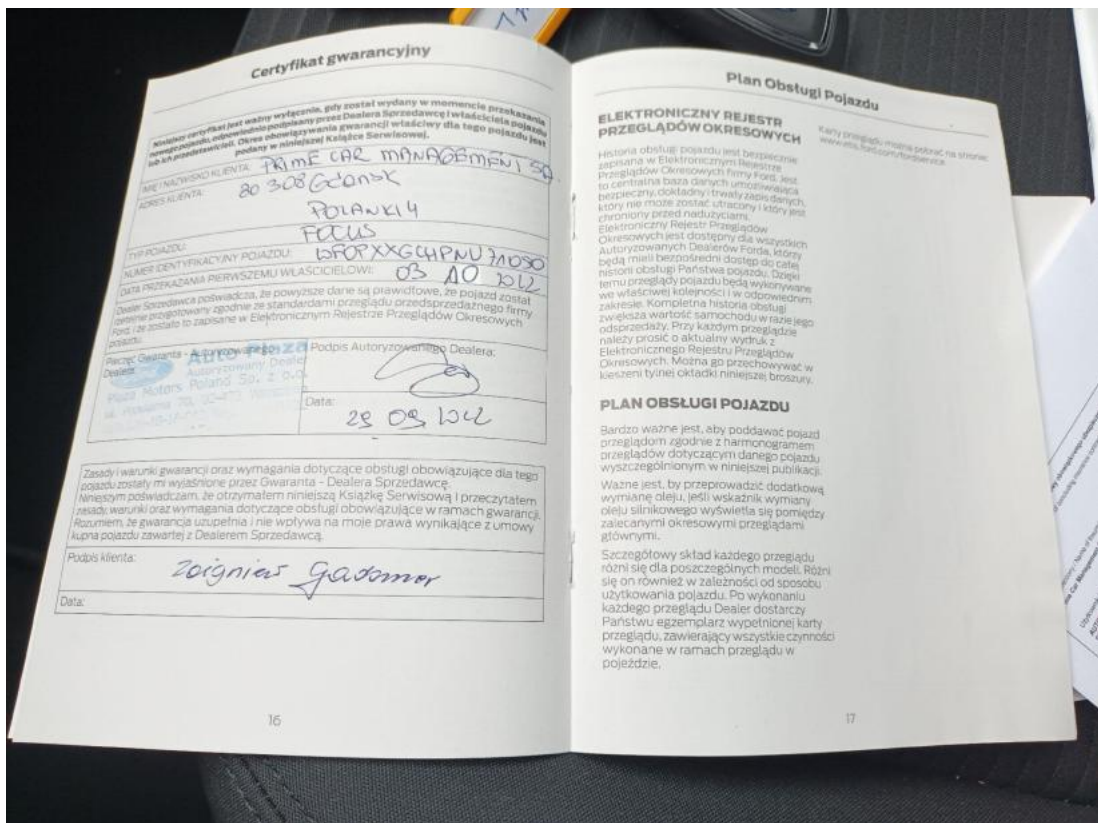 Certyfikat gwarancyjny
Niniejszy certyfikat jest ważny wyłącznie, gdy został wydany w momencie przekazania
nowego pojazdu, odpowiednio podpisany przez Dealera Sprzedawcę i właściciela pojazdu
lub ich przedstawicieli. Okres obowiązywania gwarancji właściwy dla tego pojazdu jest
podany w niniejszej Książce Serwisowej.
IMIĘ I NAZWISKO KLIENTA: PRIME CAR MANAGEMENT SA
ADRES KLIENTA: 80 308 Gdańsk
POLANKI 4
TYP POJAZDU: FOCUS
NUMER IDENTYFIKACYJNY POJAZDU: WF0PXXGCHPNU71090
DATA PRZEKAZANIA PIERWSZEMU WŁAŚCICIELOWI: 03 10 2022
Dealer Sprzedawca poświadcza, że powyższe dane są prawidłowe, że pojazd został
pełnie przygotowany zgodnie ze standardami przeglądu przedsprzedażnego firmy
Ford, i że zostało to zapisane w Elektronicznym Rejestrze Przeglądów Okresowych
pojazdu.
Pieczęć Gwaranta - Autoryzowanego
Dealera:
Auto Plaza
Autoryzowany Dealer
Plaza Motors Poland Sp. z o.o.
Podpis Autoryzowanego Dealera:
Data:
29 09 2022
Zasady i warunki gwarancji oraz wymagania dotyczące obsługi obowiązujące dla tego
pojazdu zostały mi wyjaśnione przez Gwaranta - Dealera Sprzedawcę.
Niniejszym poświadczam, że otrzymałem niniejszą Książkę Serwisową i przeczytałem
zasady, warunki oraz wymagania dotyczące obsługi obowiązujące w ramach gwarancji.
Rozumiem, że gwarancja uzupełnia i nie wpływa na moje prawa wynikające z umowy
kupna pojazdu zawartej z Dealerem Sprzedawcą.
Podpis klienta:
Zbigniew Gadomer
Data:
16
Plan Obsługi Pojazdu
ELEKTRONICZNY REJESTR
PRZEGLĄDÓW OKRESOWYCH
Historia obsługi pojazdu jest bezpiecznie
zapisana w Elektronicznym Rejestrze
Przeglądów Okresowych firmy Ford. Jest
to centralna baza danych umożliwiająca
bezpieczny, dokładny i trwały zapis danych,
który nie może zostać utracony i który jest
chroniony przed nadużyciami.
Elektroniczny Rejestr Przeglądów
Okresowych jest dostępny dla wszystkich
Autoryzowanych Dealerów Forda, którzy
będą mieli bezpośredni dostęp do całej
historii obsługi Państwa pojazdu. Dzięki
temu przeglądy pojazdu będą wykonywane
we właściwej kolejności i w odpowiednim
zakresie. Kompletna historia obsługi
zwiększa wartość samochodu w razie jego
odsprzedaży. Przy każdym przeglądzie
należy prosić o aktualny wydruk z
Elektronicznego Rejestru Przeglądów
Okresowych. Można go przechowywać w
kieszeni tylnej okładki niniejszej broszury.
PLAN OBSŁUGI POJAZDU
Bardzo ważne jest, aby poddawać pojazd
przeglądom zgodnie z harmonogramem
przeglądów dotyczącym danego pojazdu
wyszczególnionym w niniejszej publikacji.
Ważne jest, by przeprowadzić dodatkową
wymianę oleju, jeśli wskaźnik wymiany
oleju silnikowego wyświetla się pomiędzy
zalecanymi okresowymi przeglądami
głównymi.
Szczegółowy skład każdego przeglądu
różni się dla poszczególnych modeli. Różni
się on również w zależności od sposobu
użytkowania pojazdu. Po wykonaniu
każdego przeglądu Dealer dostarczy
Państwu egzemplarz wypełnionej karty
przeglądu, zawierający wszystkie czynności
wykonane w ramach przeglądu w
pojeździe.
Karty przeglądu można pobrać na stronie:
www.etis.ford.com/fordservice.
17